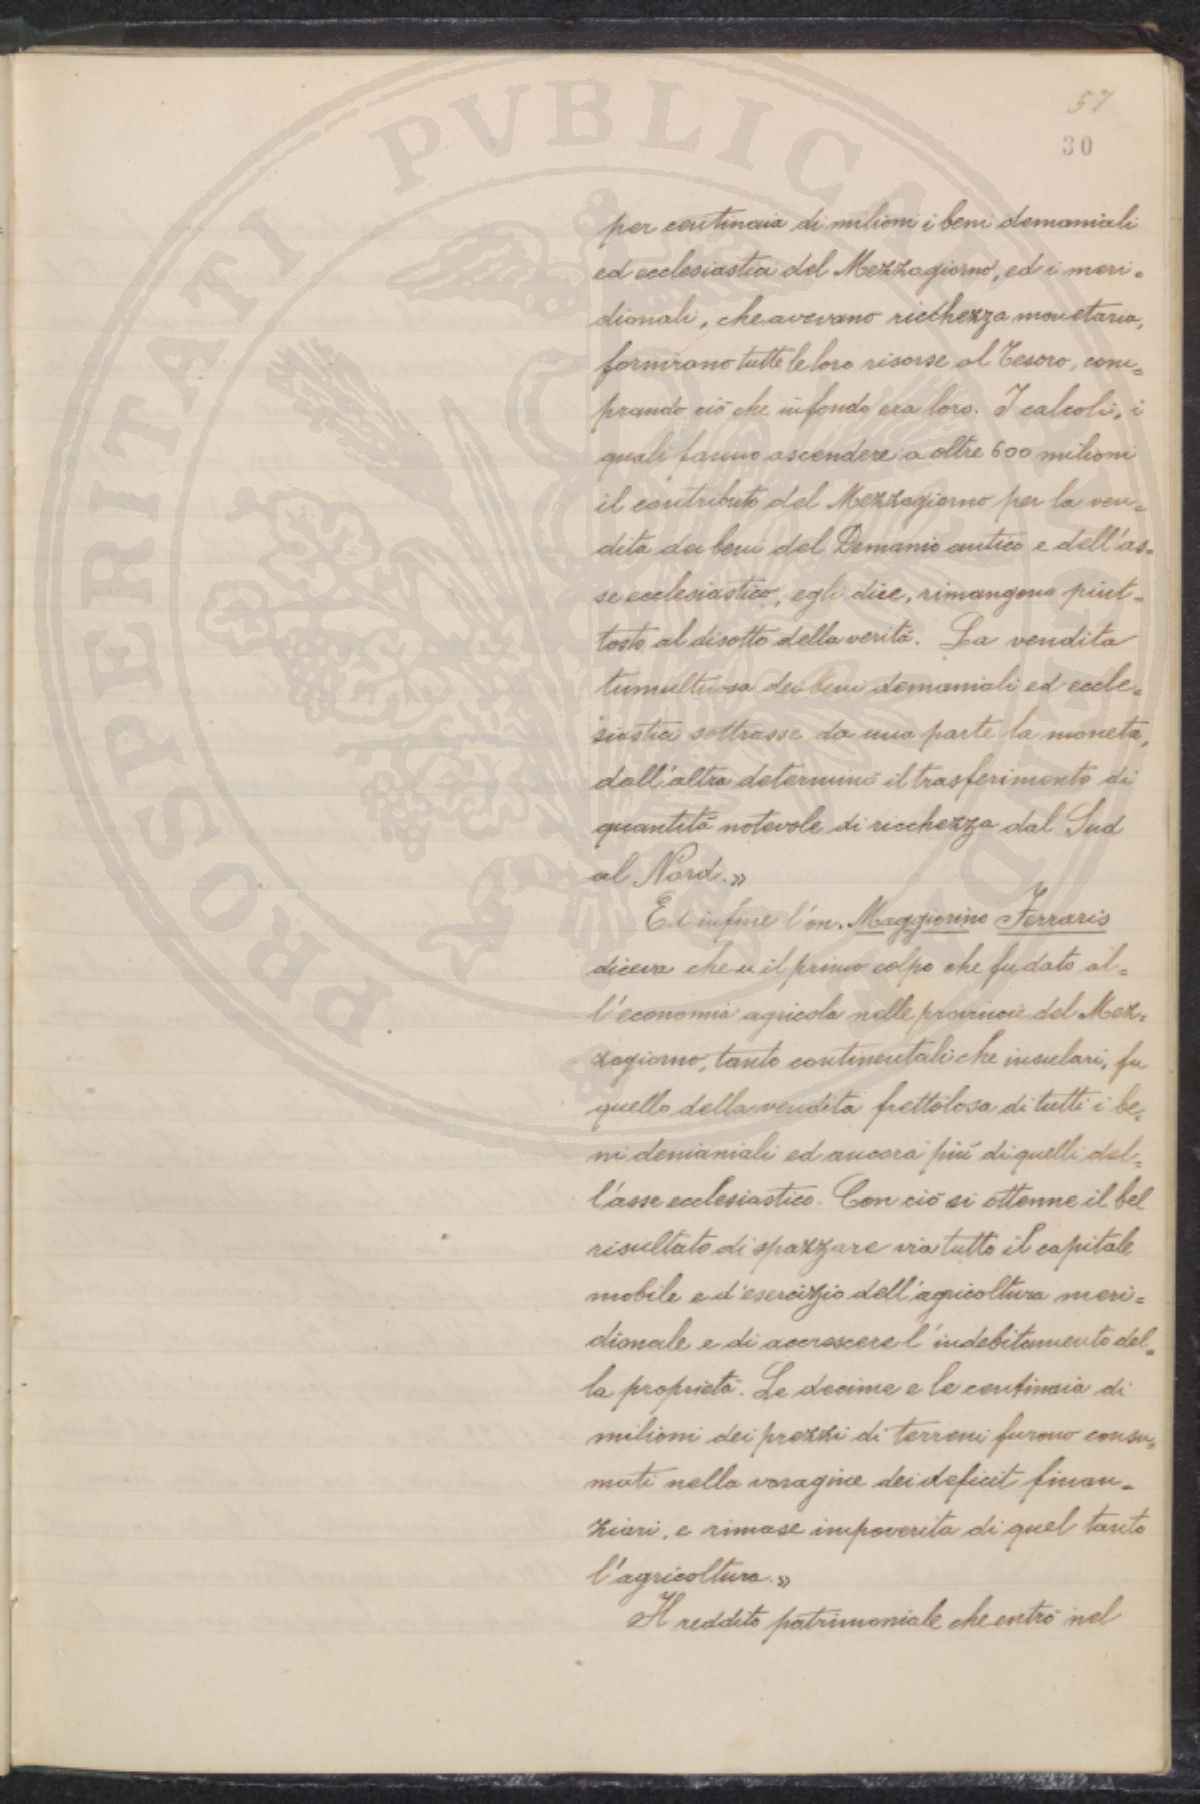 57
30
PROSPERITATI PVBLICAE
per centinaia di milioni i beni demaniali
ed ecclesiastici del Mezzogiorno, ed i meri=
dionali, che avevano ricchezza monetaria,
fornirono tutte le loro risorse al Tesoro, com=
prando ciò che in fondo era loro. I calcoli, i
quali fanno ascendere a oltre 600 milioni
il contributo del Mezzogiorno per la ven=
dita dei beni del Demanio antico e dell'as=
se ecclesiastico, egli dice, rimangono piut=
tosto al disotto della verità. La vendita
tumultuosa dei beni demaniali ed eccle=
siastici sottrasse da una parte la moneta,
dall'altra determinò il trasferimento di
quantità notevole di ricchezza dal Sud
al Nord.»
Ed infine l'on. Maggiorino Ferraris
diceva che « il primo colpo che fu dato al=
l'economia agricola nelle provincie del Mez=
zogiorno, tanto continentali che insulari, fu
quello della vendita frettolosa di tutti i be=
ni demaniali ed ancora più di quelli del=
l'asse ecclesiastico. Con ciò si ottenne il bel
risultato di spazzare via tutto il capitale
mobile e d'esercizio dell'agricoltura meri=
dionale e di accrescere l'indebitamento del=
la proprietà. Le decime e le centinaia di
milioni dei prezzi di terreni furono consu=
mati nella voragine dei deficit finan=
ziari, e rimase impoverita di quel tanto
l'agricoltura.»
Il reddito patrimoniale che entrò nel